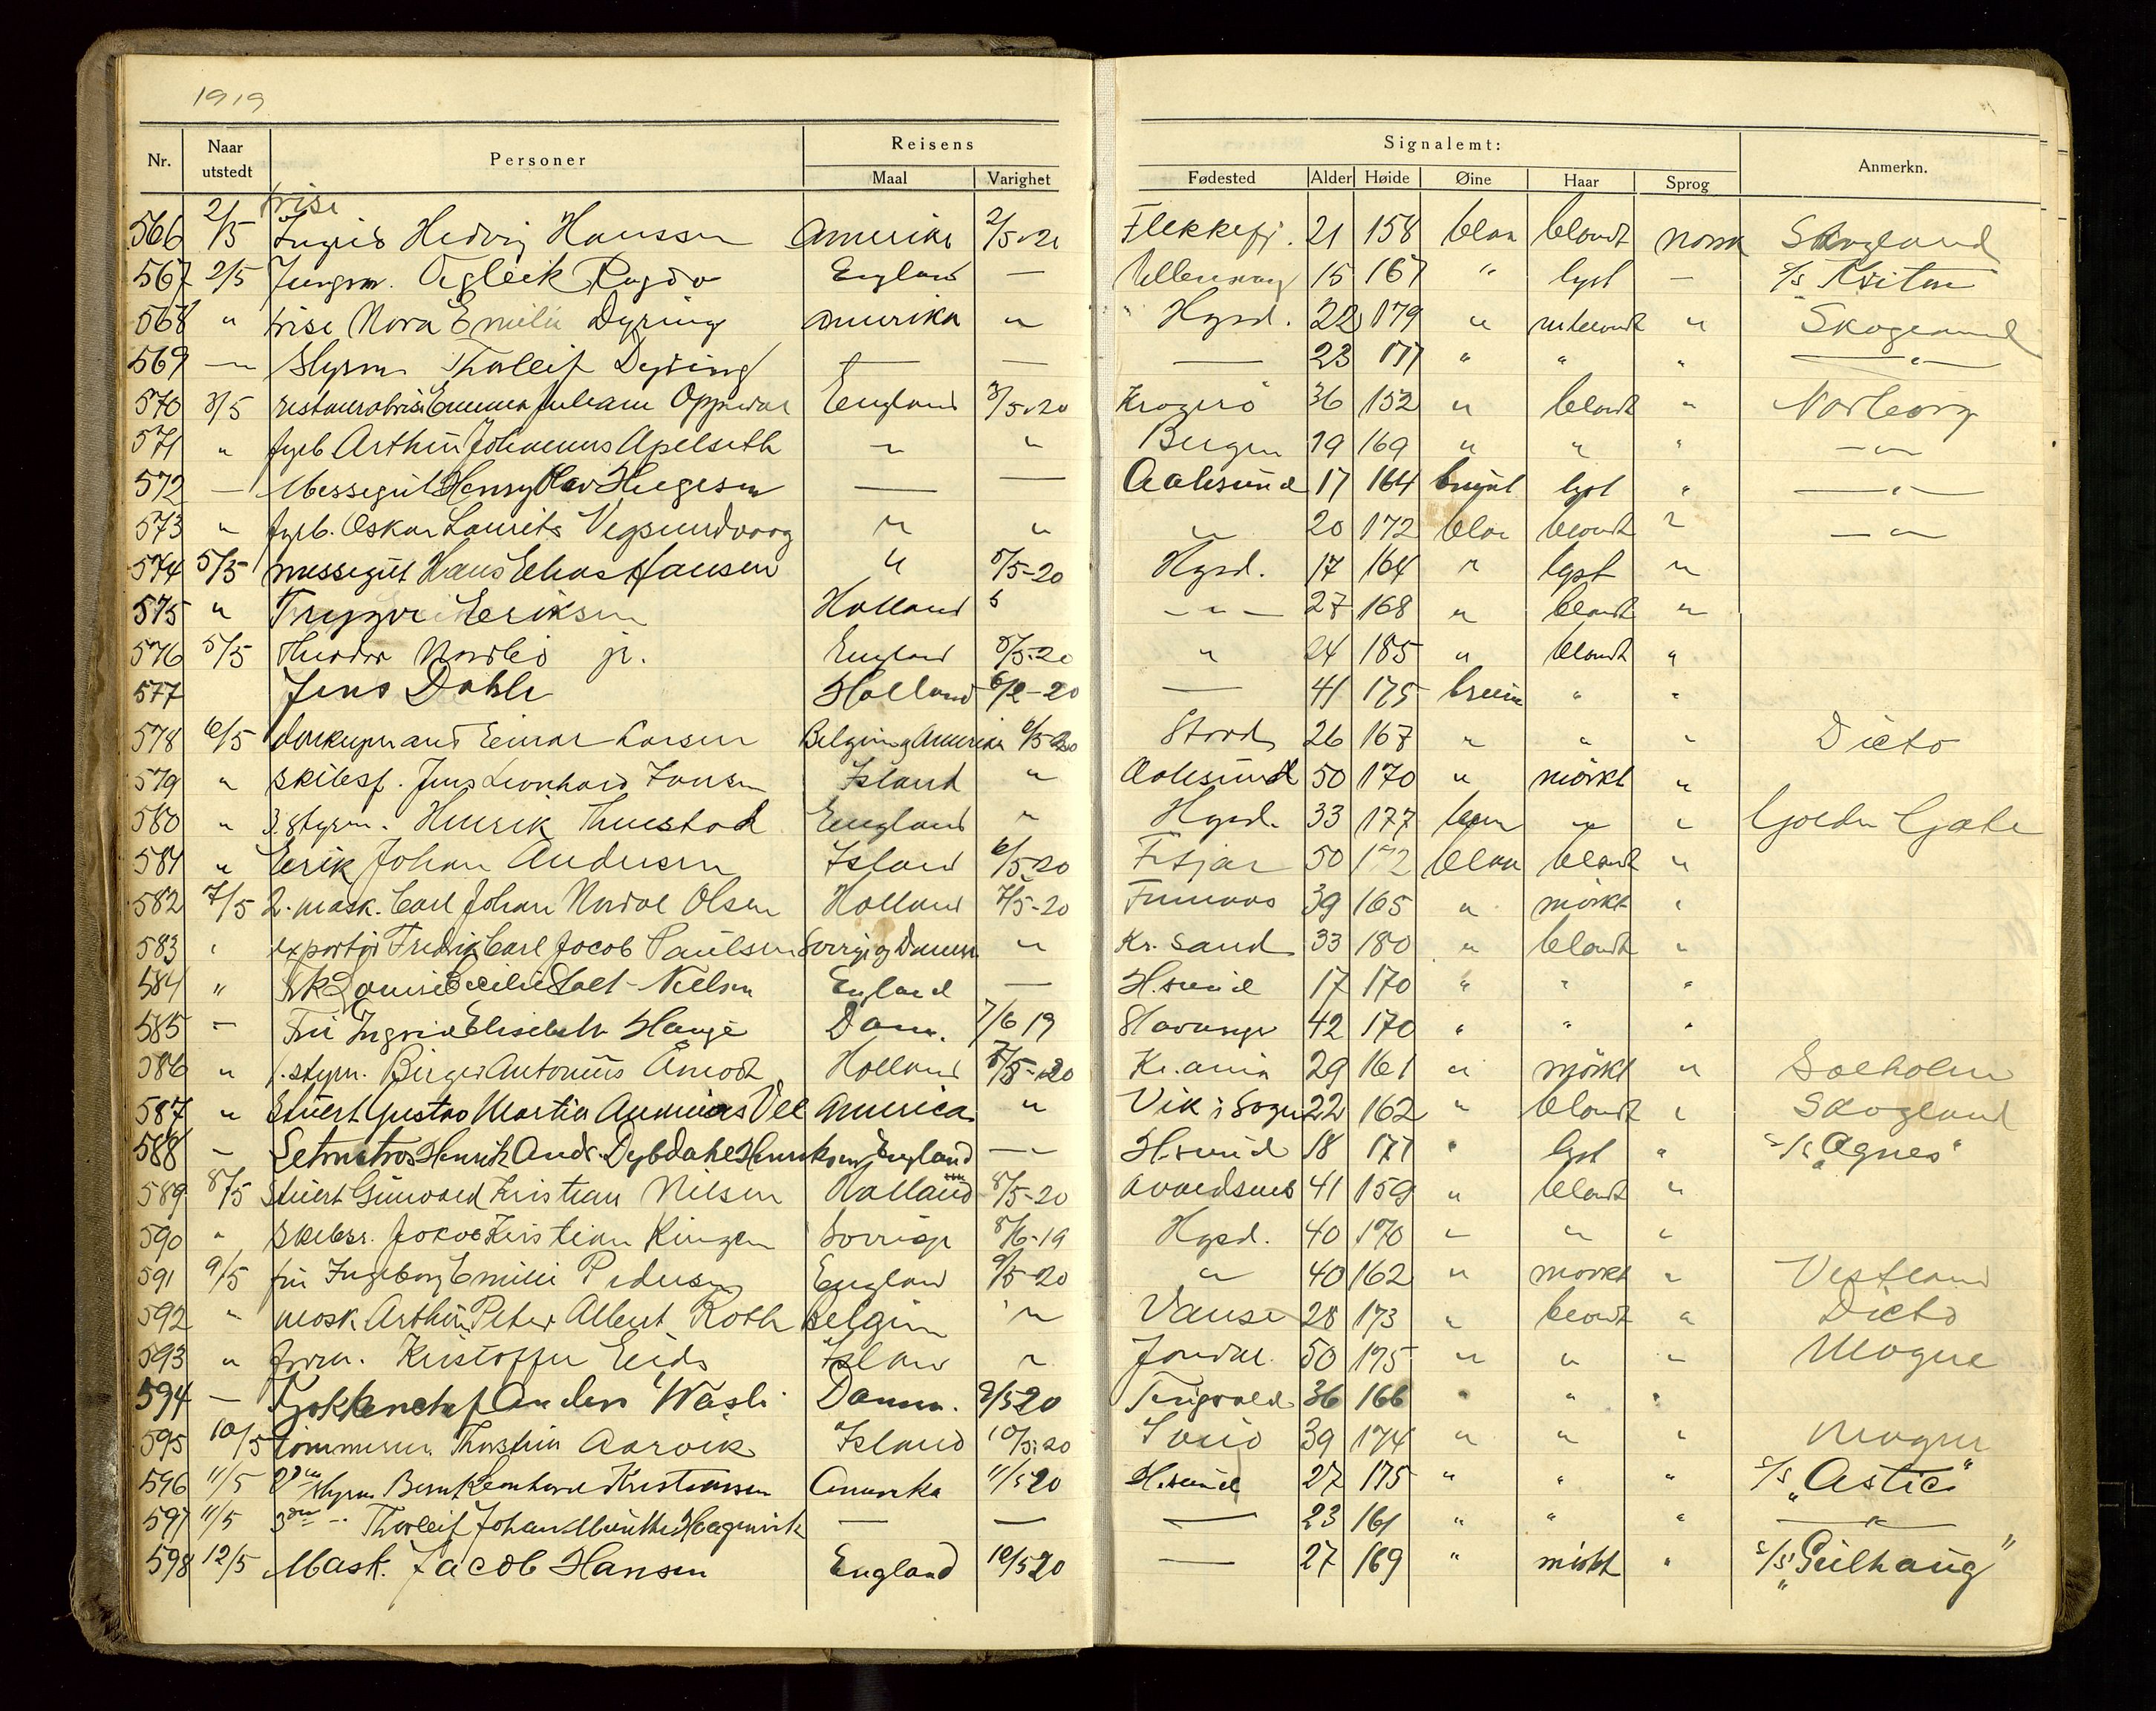 1919
Nr. Naar utstedt Personer Reisens Maal Varighet Signalemt: Fødested Alder Høide Øine Haar Sprog Anmerkn.
566 2/5 frisø Ingrid Hedvig Hanssen Amerika 2/5-20 Flekkefj. 21 158 blaa blondt norsk Skogland
567 2/5 Jungm. Agleik Rogdo England — Ullensvang 15 167 " lyst — s/s Kriton
568 " frisø Nora Emilie Dyring Amerika " Hgsd. 22 179 " m.blondt " Skogland
569 — Styrm Thorleif Dyring — — — 23 177 " " " — " —
570 3/5 restauratrise Emma Juliane Oppedal England 3/5-20 Kragerø 36 152 " blondt " Norborg
571 " fyrb Arthur Johannes Apelseth " " Bergen 19 169 " " " — " —
572 — Messegut Henry Olav Helgesen — — Aalesund 17 164 brunt lyst " — " —
573 " fyrb. Oskar Laurits Vegsundvaag " " " 20 172 blaa blondt " — " —
574 5/5 messegut Hans Elias Hansen " 5/5-20 Hgsd. 17 164 " lyst "
575 " Trygve Eriksen Holland " — " — 27 168 " blondt "
576 5/5 Theodor Nordbø jr. England 5/5-20 " 24 185 " blondt "
577 Jens Dahle Holland 6/2-20 — 41 175 brune " "
578 6/5 donkeymand Einar Larsen Belgien og Amerika 6/5-20 Stord 26 167 " " " Dicto
579 " skibsf. Jens Leonhard Jansen Island " Aalesund 50 170 " mørkt "
580 " 3. styrm. Henrik Thuestad England " Hgsd. 33 177 brun " " Golden Gate
581 " Erik Johan Andersen Island 6/5-20 Fitjar 50 172 blaa blondt "
582 7/5 2. mask. Carl Johan Nordal Olsen Holland 7/5-20 Finnaas 39 165 " mørkt "
583 " exportør Fredrik Carl Jacob Paulsen Sverrige og Danm. " Kr.sand 33 180 " blondt "
584 " Frk Louise Cecilie Stolt-Nielsen England — H.sund 17 170 " " "
585 " Fru Ingrid Elisabeth Hauge Danm. 7/6 19 Stavanger 42 170 " " "
586 " 1. styrm. Birger Antonius Åmodt Holland 7/5-20 Kr.ania 29 161 " mørkt " Solholm
587 " Stuert Gustav Martin Andreas Vee America " Vik i Sogn 22 162 " blondt " Skogland
588 — Letmatros Henrik Andr. Dybdahl Henriksen England — H.sund 18 171 " lyst " s/s "Agnes"
589 8/5 Stuert Gunvald Kristian Nilsen Holland 8/5-20 Avaldsnes 41 159 " blondt "
590 " Skibsr. Jakob Kristian Ringen Sverrige 8/6-19 Hgsd. 40 170 " " "
591 9/5 fru Ingeborg Emilie Pedersen England 9/5-20 " 40 162 " mørkt " Vestland
592 " mask. Arthur Peter Albert Roth Belgien " Vanse 28 173 " blondt " Dicto
593 " form. Kristoffer Eide Island " Jondal 50 175 " " " Mogne
594 — Kjøkkenchef Anders Wasli Danm. 9/5 20 Tingvold 36 166 " " "
595 10/5 tømmerm. Thorstein Aarvik Island 10/5-20 39 174 " " " Mogne
596 11/5 2den styrm. Bernt Leonhard Kristiansen Amerika 11/5 20 H.sund 27 175 " " " s/s "Astic"
597 11/5 3die — " Thorleif Johan Münthe Haagensick — — — 23 161 " " " — " —
598 12/5 Mask. Jacob Hansen England 12/5 20 — 27 169 " mørkt " s/s "Gulhaug"